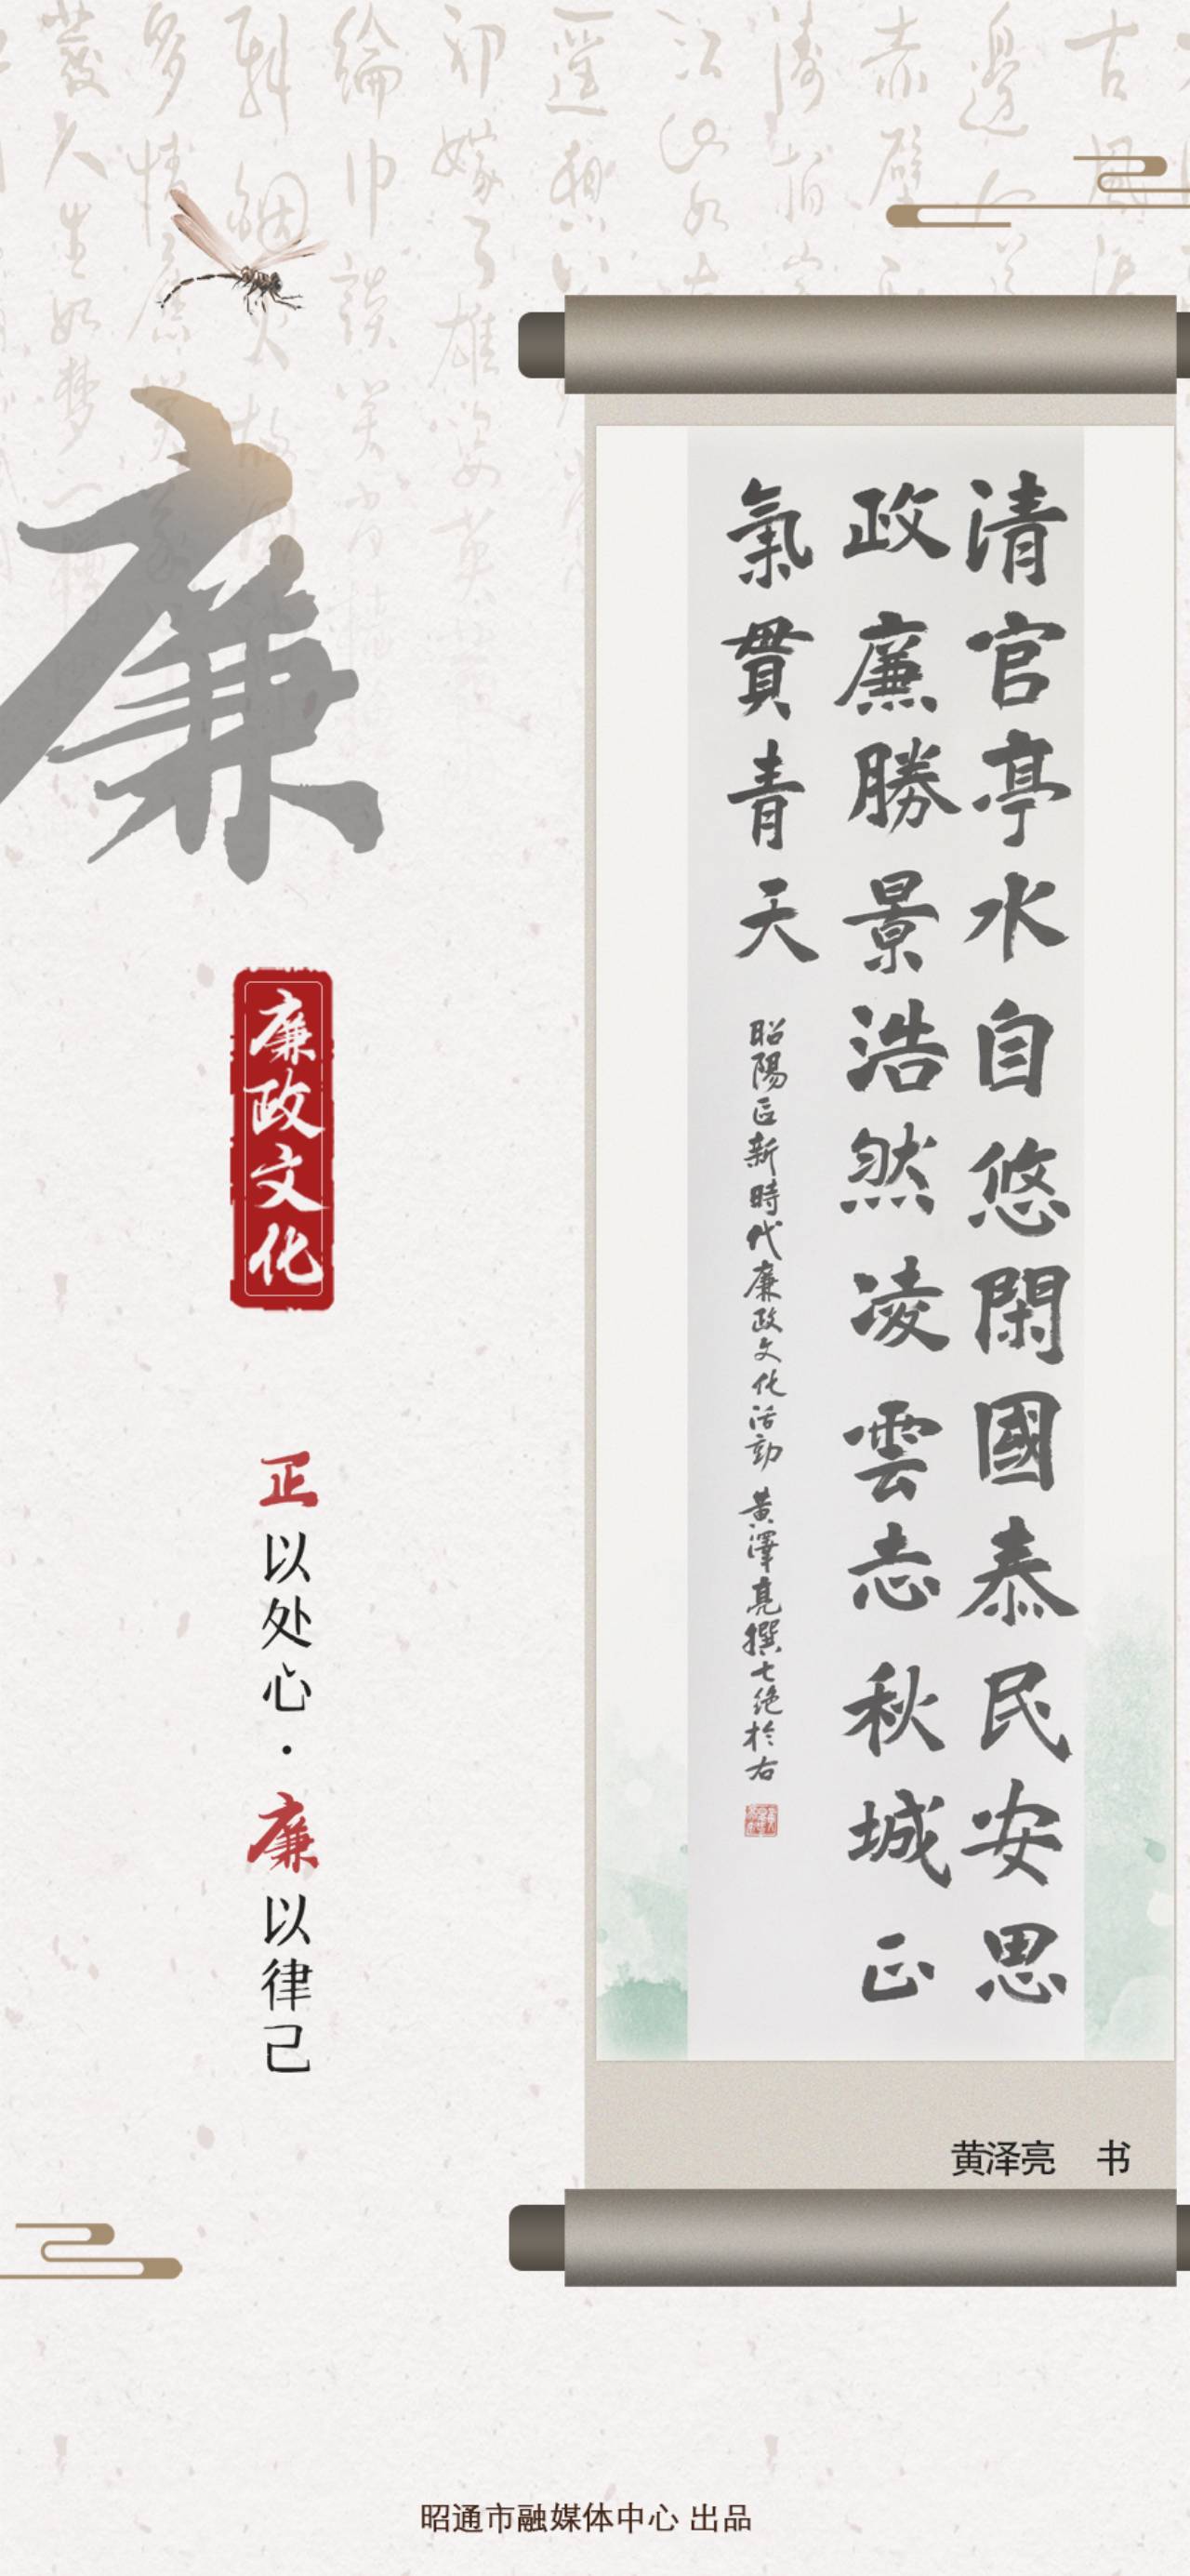 清官亭水自悠閑國泰民安思
政廉勝景浩然凌雲志秋城正
氣貫青天
昭陽区新時代廉政文化活動 黄澤亮撰七绝於右
廉
廉政文化
正以处心·廉以律己
黄泽亮 书
昭通市融媒体中心 出品